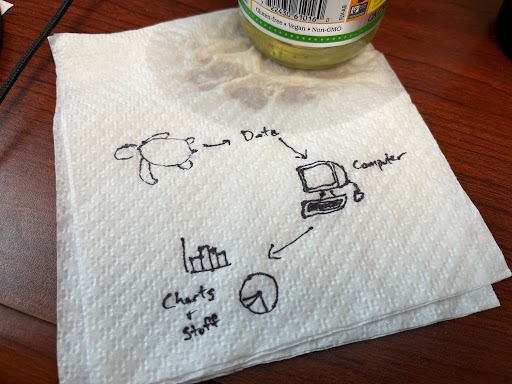 Gluten-free • Vegan • Non-GMO
Data
Computer
Charts
+
Stuff